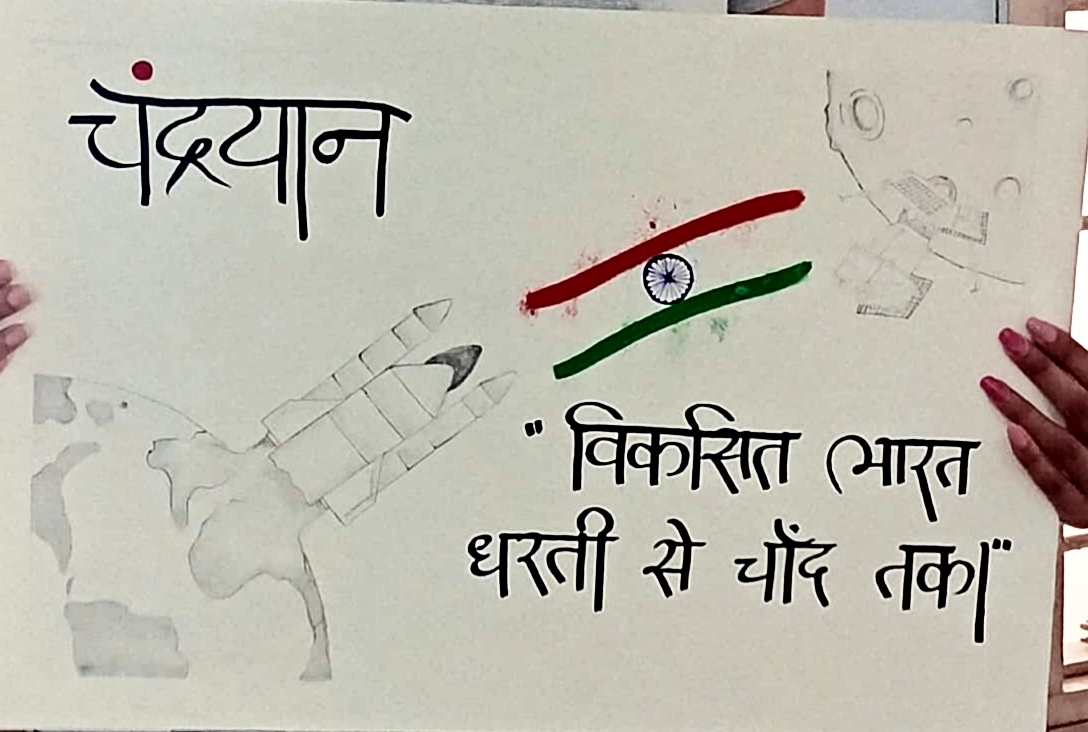 चंद्रयान
"विकसित भारत
धरती से चाँद तक।"